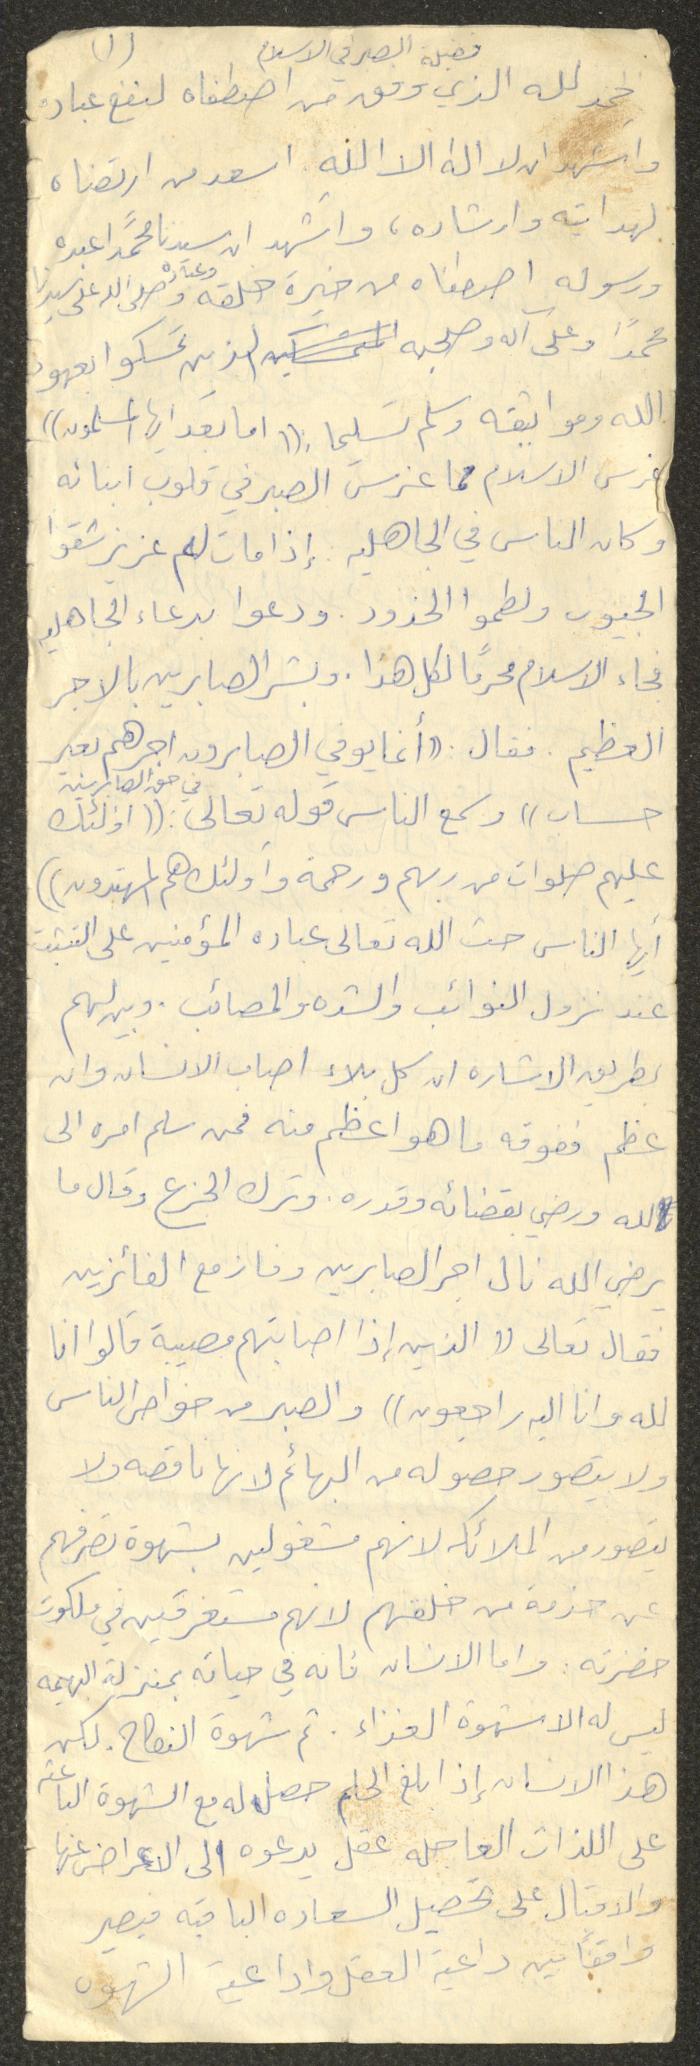 فضيلة الصبر في الاسلام (١)
الحمد لله الذي وفق من اصطفاه لنفع عباده
واشهد ان لا اله الا الله اسعد من ارتضاه
لهدايته وارشاده، واشهد ان سيدنا محمداً عبده
ورسوله اصطفاه من خيرة خلقه وعباده وصلى الله على سيدنا
محمداً وعلى آله وصحبه الذين تمسكوا بعهود
الله ومواثيقه وسلم تسليما: ((اما بعد ايها المسلمون))
غرس الاسلام مما غرس الصبر في قلوب ابنائه
وكان الناس في الجاهليه . إذا مات لهم عزيز شقوا
الجيوب ولطموا الخدود . ودعوا بدعاء الجاهليه
فجاء الاسلام محرمًا لكل هذا . وبشر الصابرين بالاجر
العظيم . فقال : ((أنما يوفي الصابرون اجرهم بغير
حساب)) وسمع الناس قوله تعالى في حق الصابرين : ((اولئك
عليهم صلوات من ربهم ورحمة وأولئك هم المهتدون))
أيها الناس حث الله تعالى عباده المؤمنين على التثبت
عند نزول النوائب والشده والمصائب . وبين لهم
بطريق الاشاره ان كل بلاء اصاب الانسان وان
عظم ففوقه ما هو اعظم منه فمن سلم امره الى
الله ورضي بقضائه وقدره . وترك الجزع وقال ما
يرضي الله نال اجر الصابرين وفاز مع الفائزين
فقال تعالى ((الذين إذا اصابتهم مصيبة قالوا انا
لله وانا اليه راجعون)) والصبر من خواص الناس
ولا يتصور حصوله من البهائم لانها ناقصه ولا
يتصور من الملائكه لانهم مشغولين بشهوة تصرفهم
عن خدمة من خلقهم لانهم مستغرقين في ملكوت
حضرته : واما الانسان فانه في حياته بمنزلة البهيمه
ليس له الا شهوة الغذاء . ثم شهوة النكاح . لكن
هذا الانسان إذا بلغ الحلم حصل له مع الشهوة الباعثه
على اللذات العاجله عقل يدعوه الى الاعراض عنها
والاقبال على تحصيل السعاده الباقيه فيصير
واقفًا بين داعية العقل وداعية الشهوه